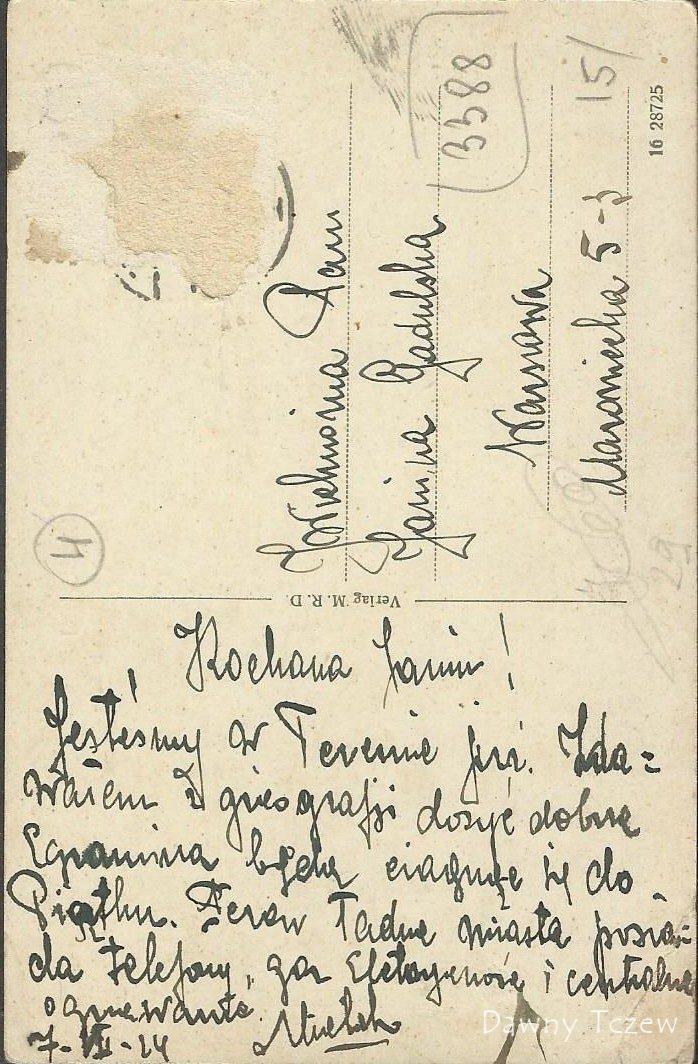 3388
15/
16 28725
Wielmożna Pani
Janina Gadulska
Warszawa
Mazowiecka 5-3
4
29
Verlag M. R. D.
Kochana Janin !
Jesteśmy w Terenie już. Zda=
wałem z gieografji dosyć dobrze
Egzamina będą ciągnęły się do
Piątku. Teraz ładne miasta posia=
da telefony, gaz Elektryczność i centralne
ogrzewanie
7-VII-24
Dawny Tczew